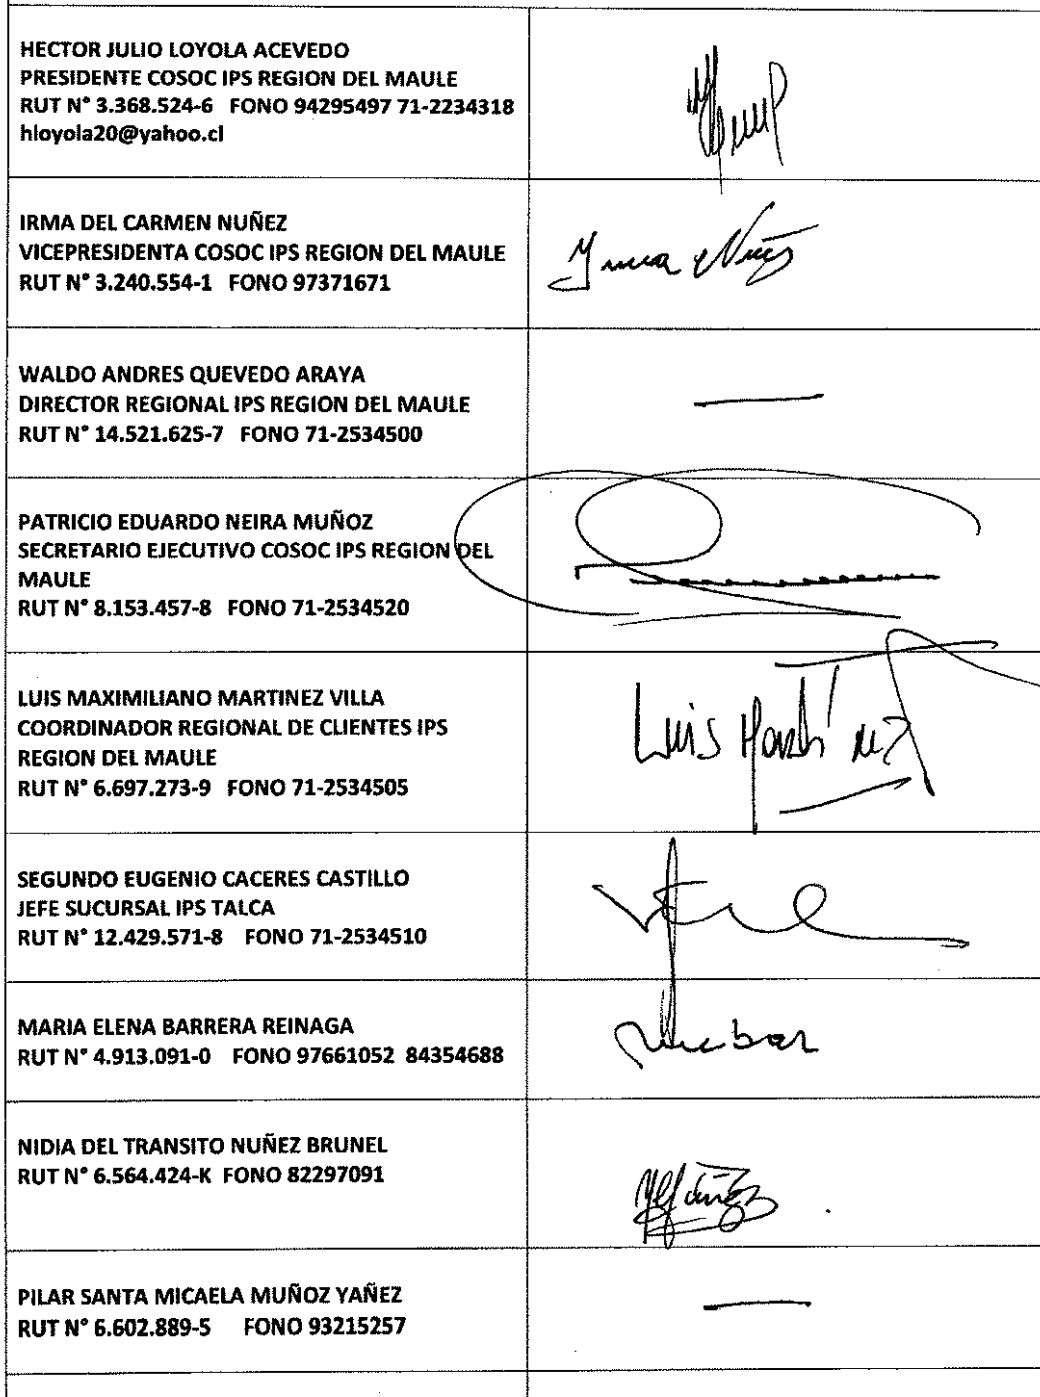 HECTOR JULIO LOYOLA ACEVEDO
PRESIDENTE COSOC IPS REGION DEL MAULE
RUT N° 3.368.524-6 FONO 94295497 71-2234318
hloyola20@yahoo.cl
IRMA DEL CARMEN NUÑEZ
VICEPRESIDENTA COSOC IPS REGION DEL MAULE
RUT N° 3.240.554-1 FONO 97371671
Irma Nuñez
WALDO ANDRES QUEVEDO ARAYA
DIRECTOR REGIONAL IPS REGION DEL MAULE
RUT N° 14.521.625-7 FONO 71-2534500
PATRICIO EDUARDO NEIRA MUÑOZ
SECRETARIO EJECUTIVO COSOC IPS REGION DEL
MAULE
RUT N° 8.153.457-8 FONO 71-2534520
LUIS MAXIMILIANO MARTINEZ VILLA
COORDINADOR REGIONAL DE CLIENTES IPS
REGION DEL MAULE
RUT N° 6.697.273-9 FONO 71-2534505
Luis Martínez
SEGUNDO EUGENIO CACERES CASTILLO
JEFE SUCURSAL IPS TALCA
RUT N° 12.429.571-8 FONO 71-2534510
MARIA ELENA BARRERA REINAGA
RUT N° 4.913.091-0 FONO 97661052 84354688
NIDIA DEL TRANSITO NUÑEZ BRUNEL
RUT N° 6.564.424-K FONO 82297091
PILAR SANTA MICAELA MUÑOZ YAÑEZ
RUT N° 6.602.889-5 FONO 93215257